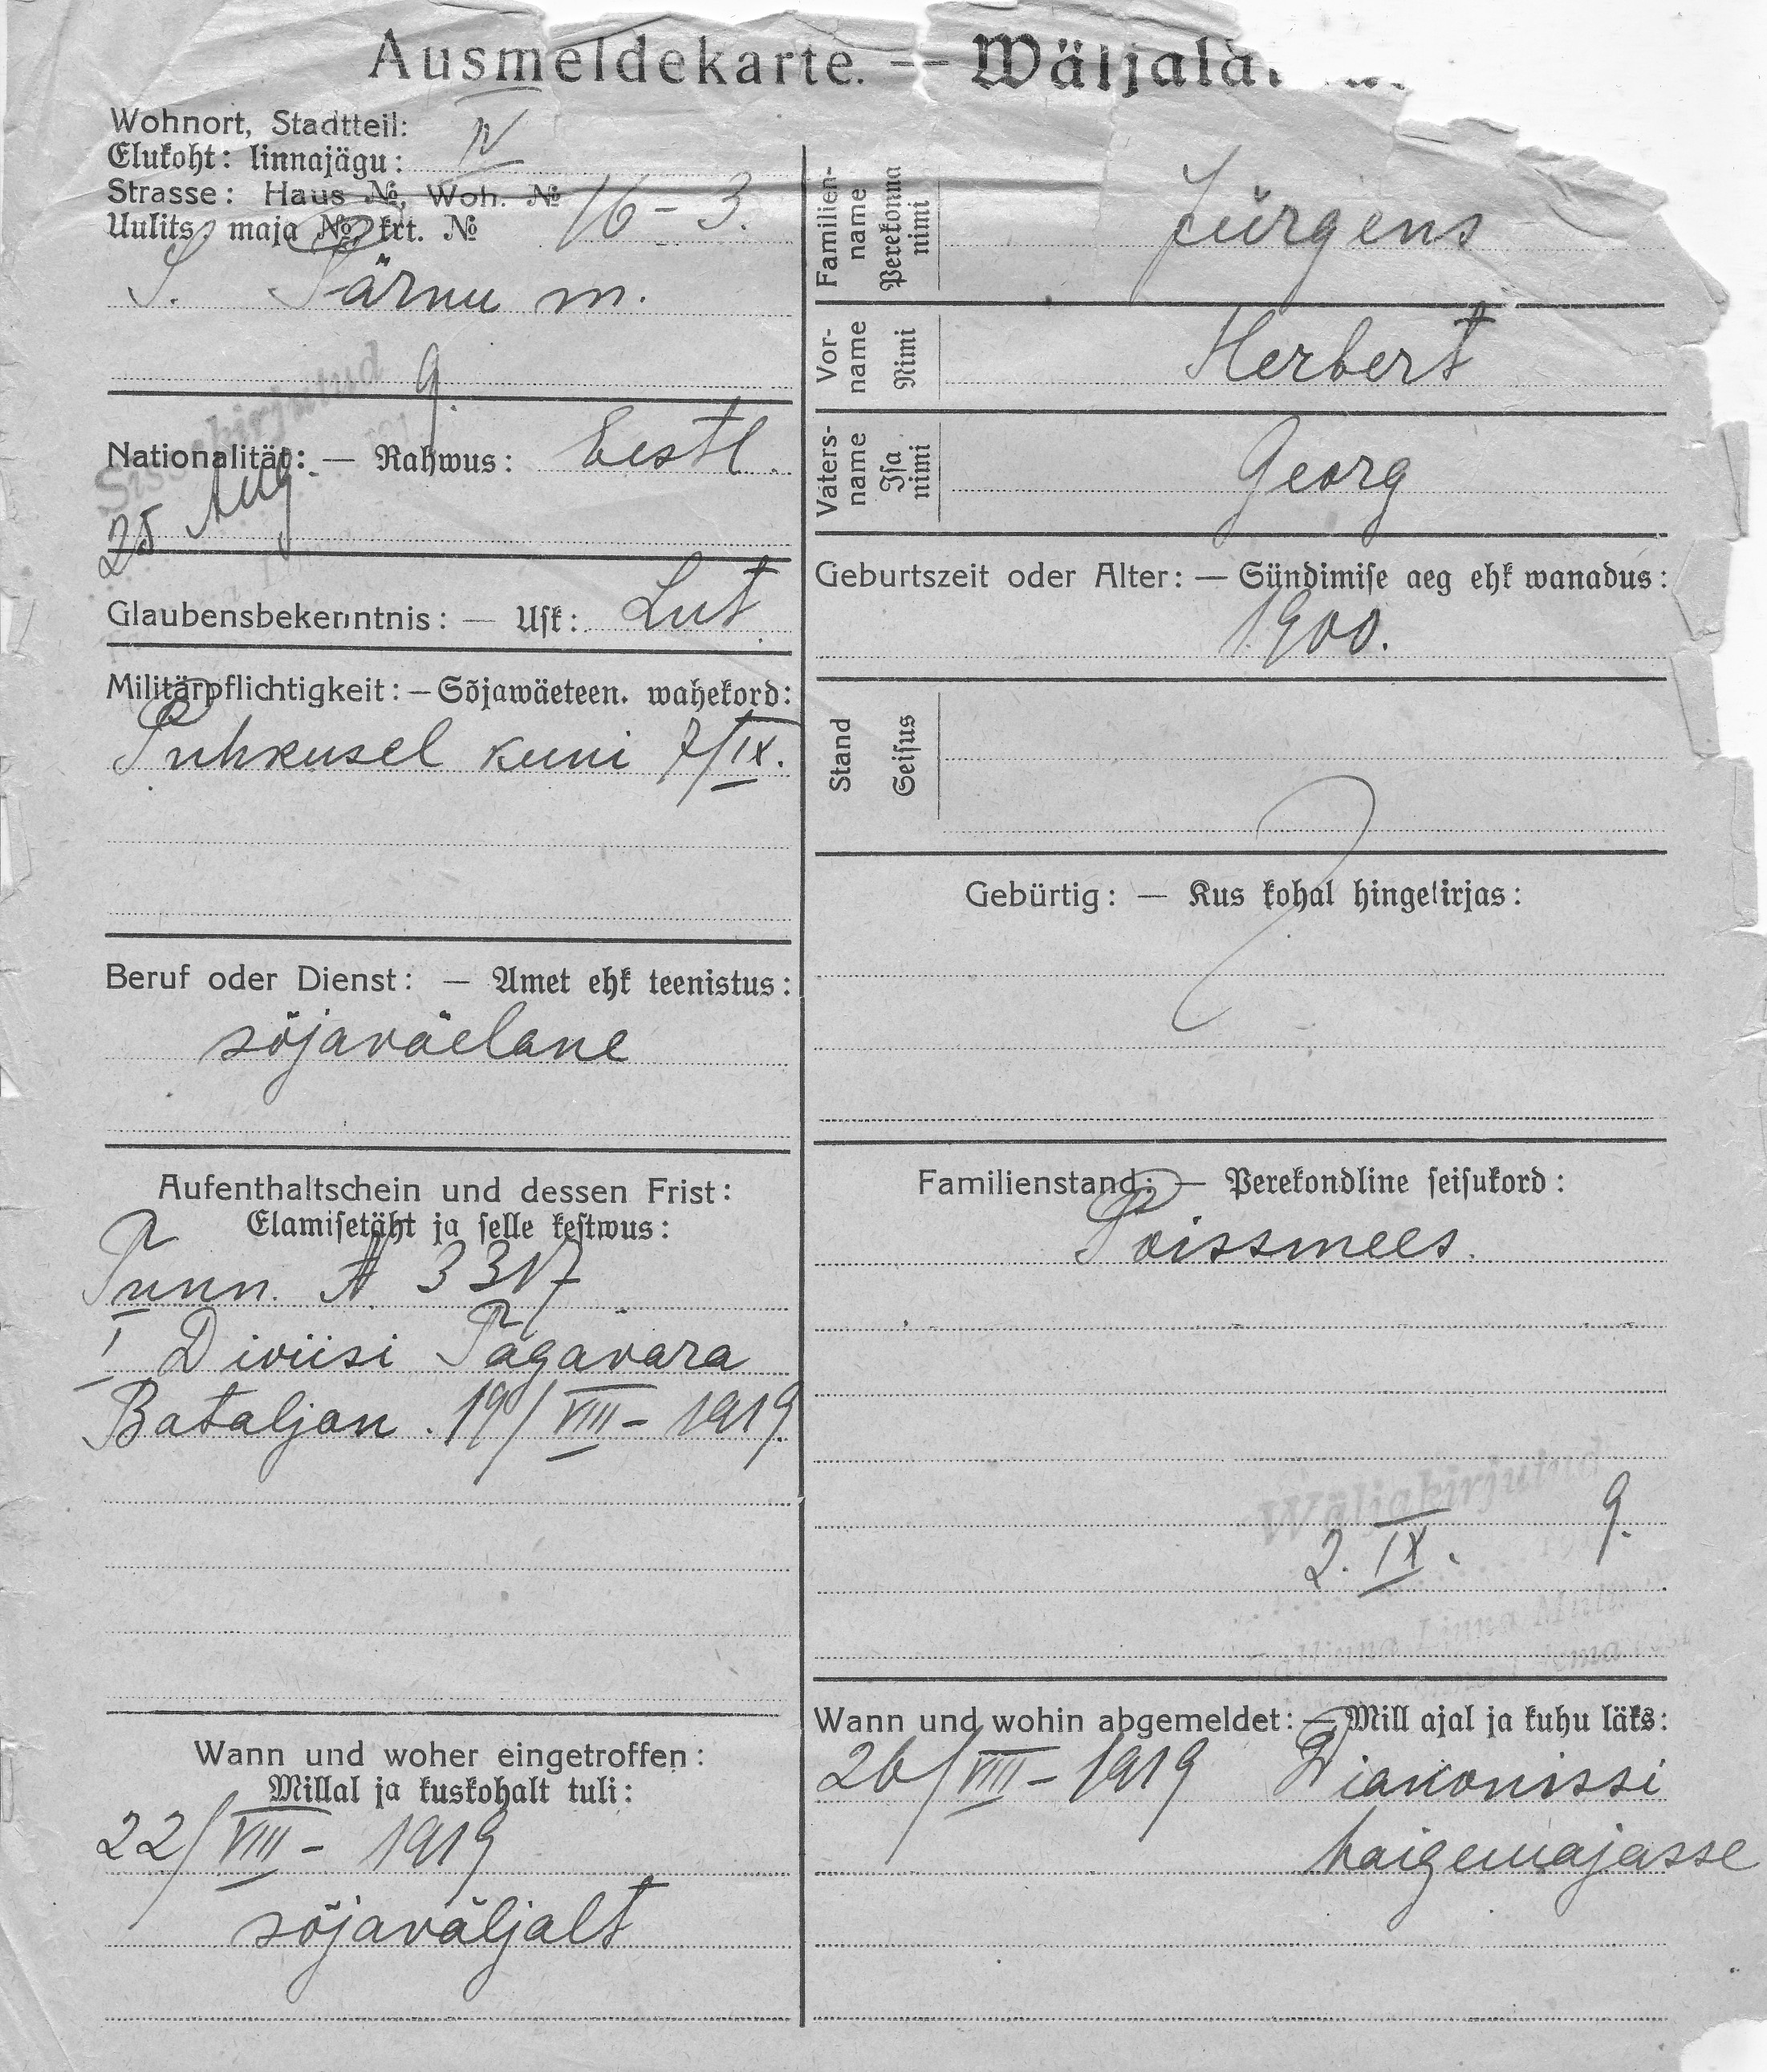 Ausmeldekarte. —
Wohnort, Stadtteil:
Elukoht: linnajägu: IV
Strasse: Haus №, Woh. №
Uulits, maja №, krt. № 16 - 3.
S. Pärnu m.
Sissekirjutud 9.
Nationalität: — Rahwus: Eestl.
25 Aug.
Glaubensbekenntnis: — Usk: Lut.
Militärpflichtigkeit: — Sõjawäeteen. wahekord:
Puhkusel kuni 7/IX.
Beruf oder Dienst: — Amet ehk teenistus:
sõjaväelane
Aufenthaltschein und dessen Frist:
Elamisetäht ja selle kestwus:
Tunn. № 3317
I Diviisi Tagavara
Bataljon. 19/VIII - 1919.
Wann und woher eingetroffen:
Millal ja kuskohalt tuli:
22/VIII - 1919
sõjaväljalt
Familien-
name
Perekonna
nimi
Jürgens
Vor-
name
Nimi
Herbert
Vaters-
name
Isa
nimi
Georg
Geburtszeit oder Alter: — Sündimise aeg ehk wanadus:
1900.
Stand
Seisus
Gebürtig: — Kus kohal hingekirjas:
?
Familienstand: — Perekondline seisukord:
Poissmees.
Wäljakirjutud
2. IX. 9.
Tallinna Linna
Wann und wohin abgemeldet: — Mill ajal ja kuhu läks:
26/VIII - 1919 Diakonissi
haigemajasse